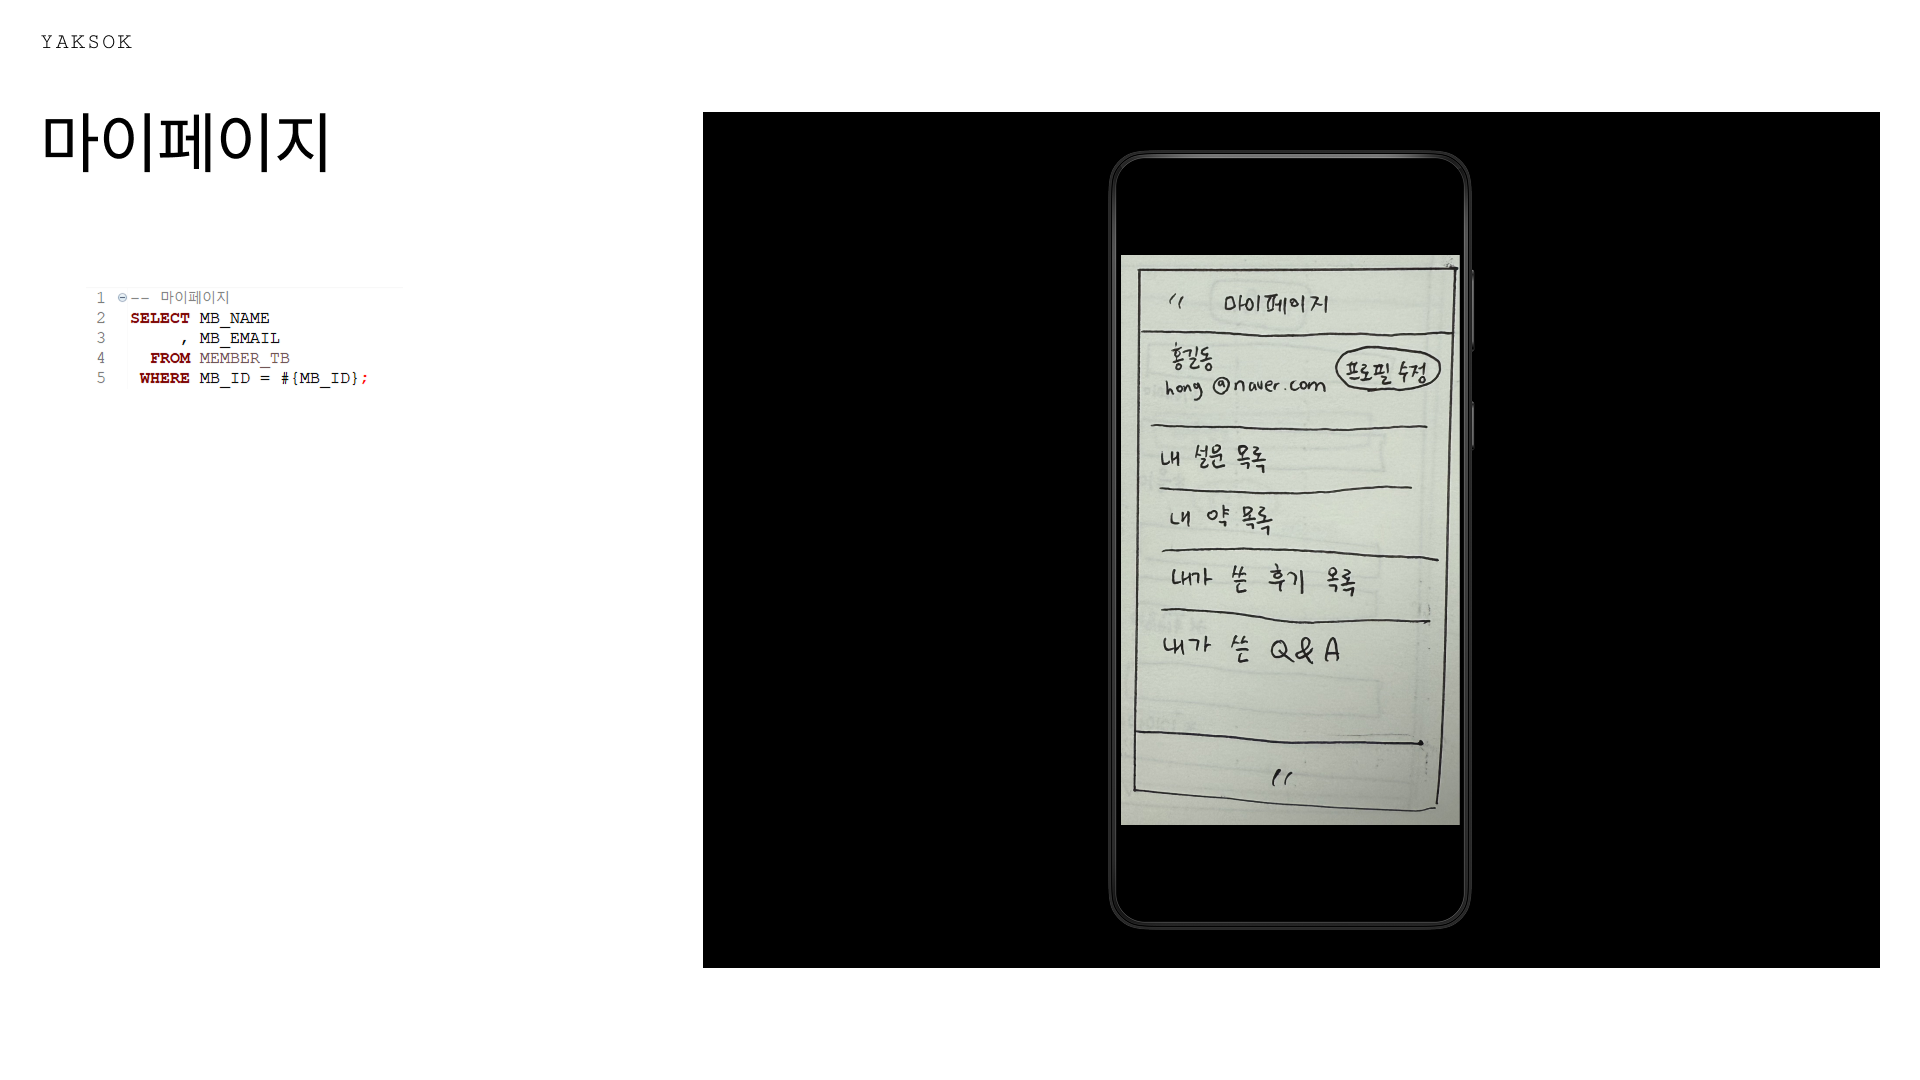 YAKSOK
마이페이지
1 -- 마이페이지
2 SELECT MB_NAME
3 , MB_EMAIL
4 FROM MEMBER_TB
5 WHERE MB_ID = #{MB_ID};
〃 마이페이지
홍길동
프로필 수정
hong @naver.com
내 설문 목록
내 약 목록
내가 쓴 후기 목록
내가 쓴 Q&A
〃